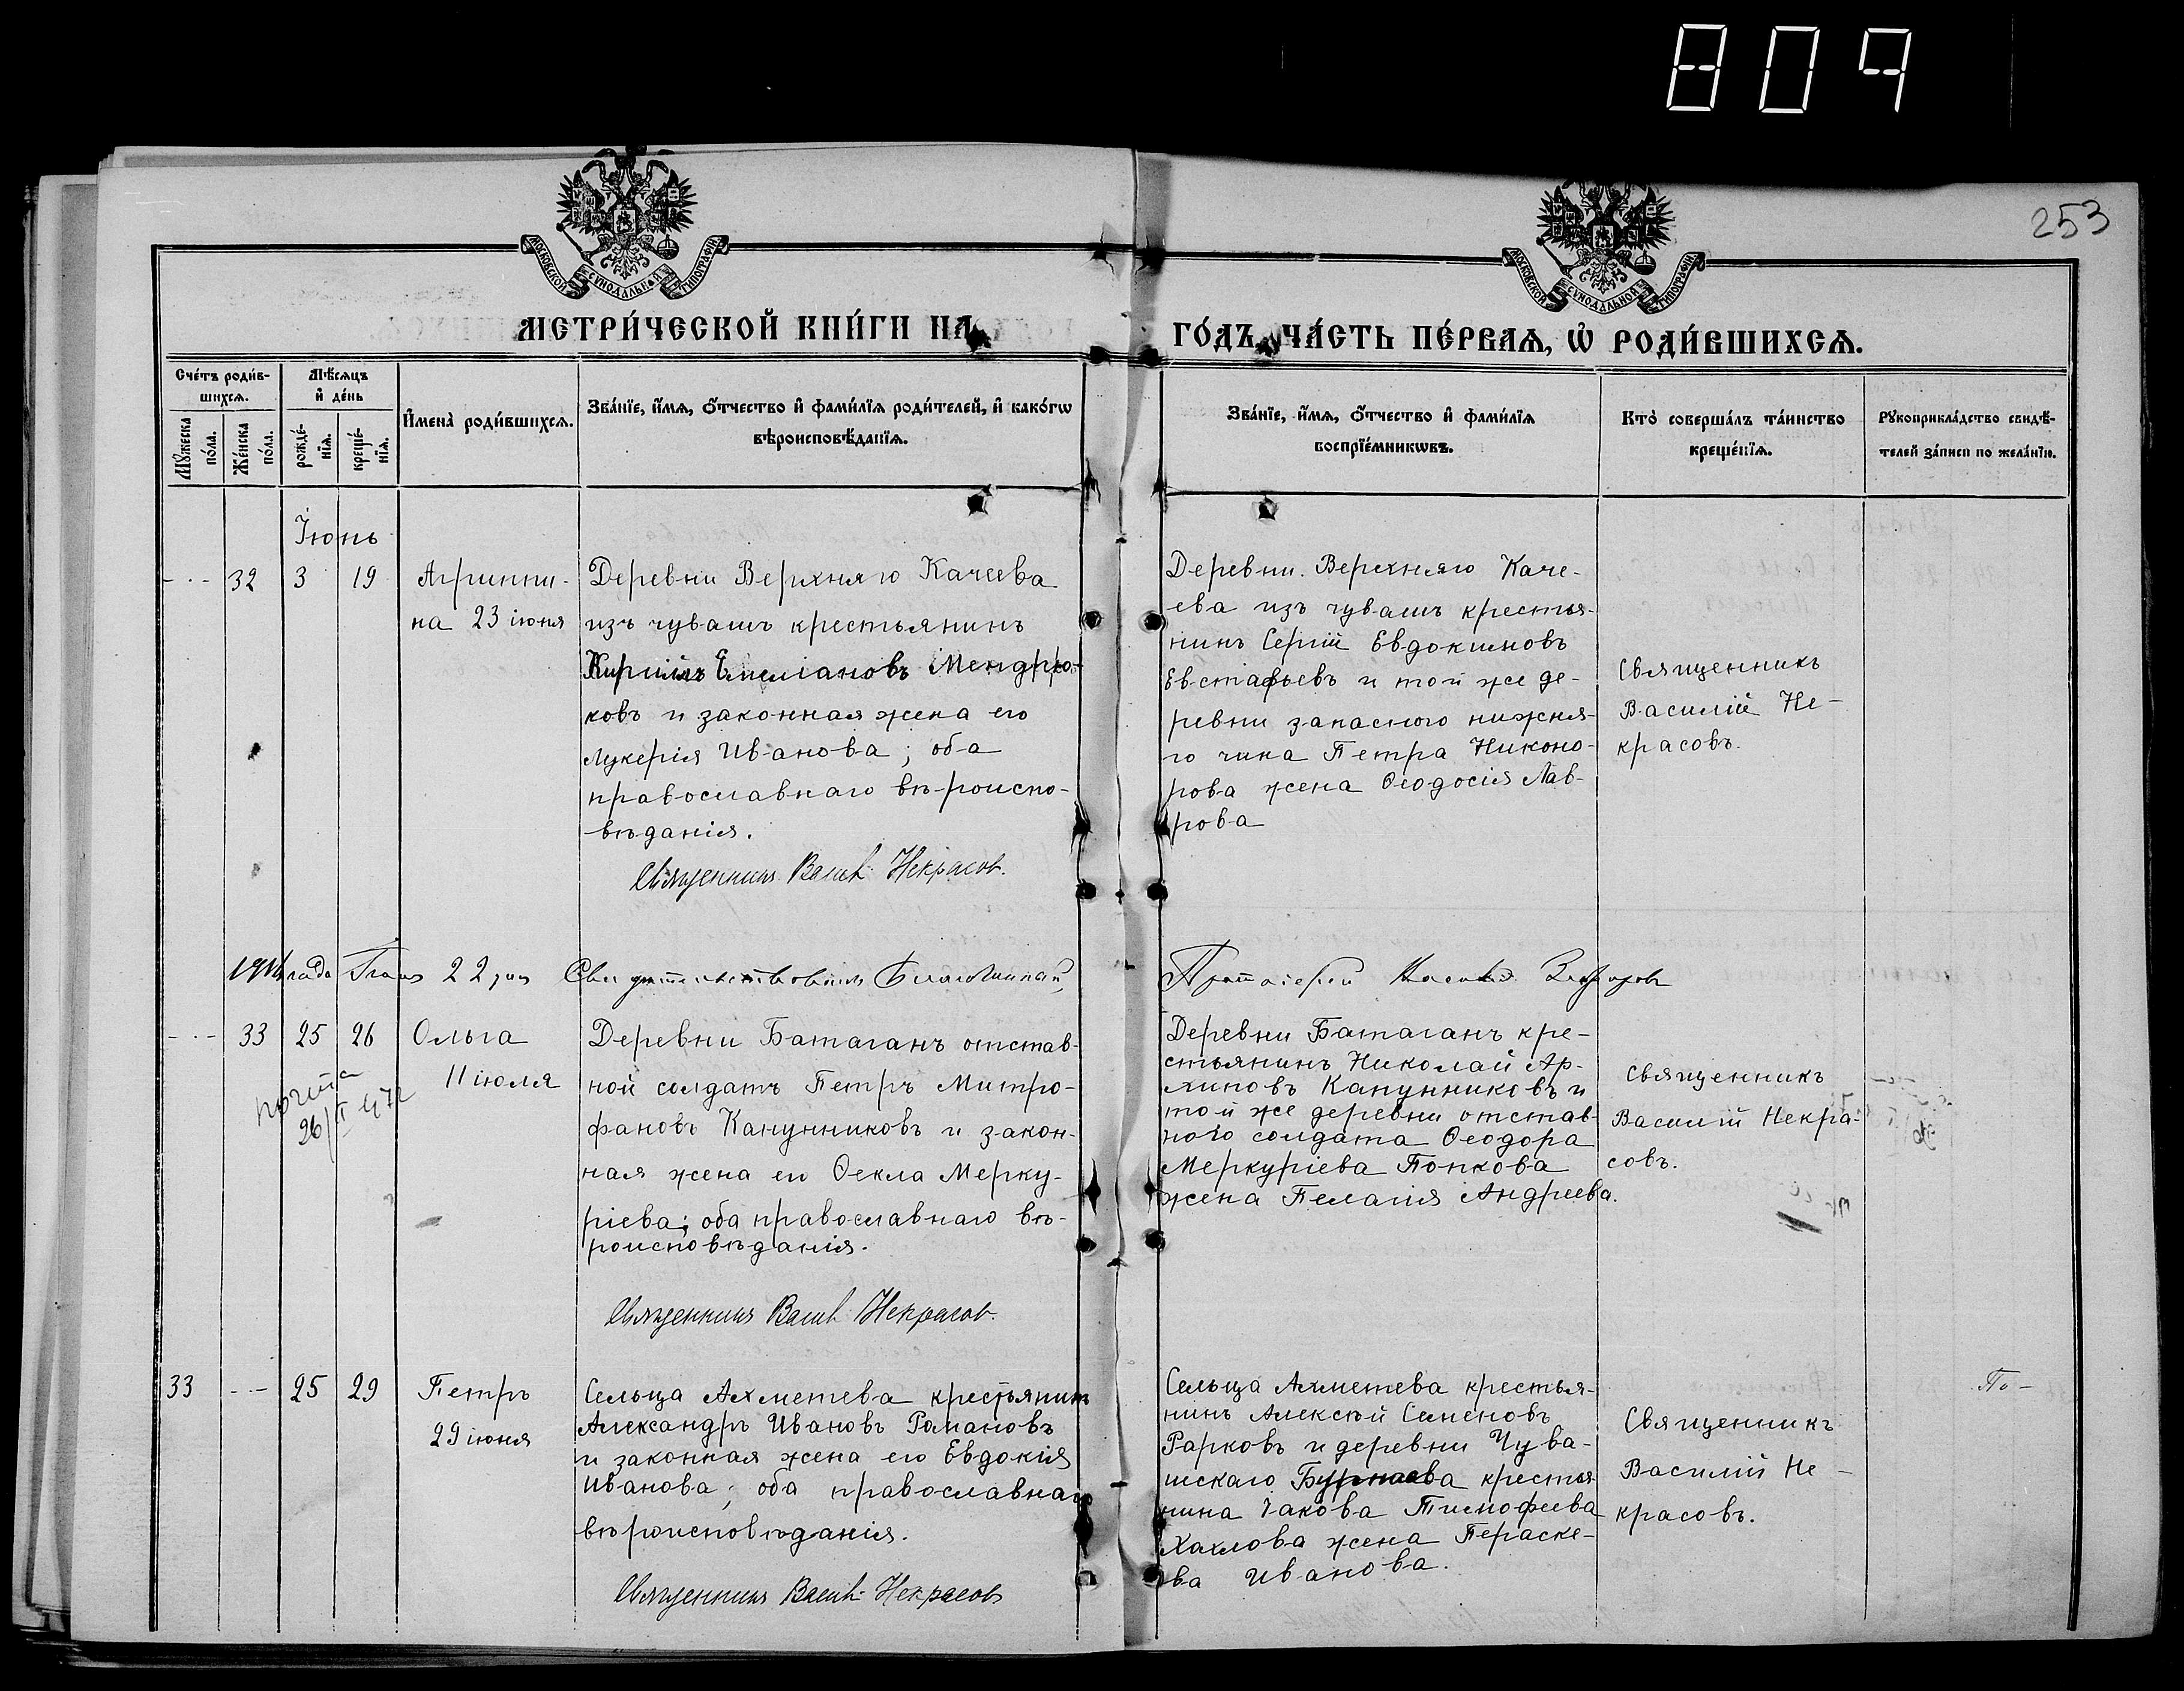 809
253
МОСКОВСКОЙ СѴНОДАЛЬНОЙ ТИПОГРАФІИ
МОСКОВСКОЙ СѴНОДАЛЬНОЙ ТИПОГРАФІИ
МЕТРИ́ЧЕСКОЙ КНИ́ГИ НА
ГО́ДЪ, ЧА́СТЬ ПЕ́РВАѦ, Ѿ РОДИ́ВШИХСѦ.
Сче́тъ роди́в-
шихсѧ.
Мѣ́сѧцъ
и҆ де́нь
Мꙋ́жеска
по́ла.
Же́нска
по́ла.
рожде́-
нїѧ.
креще́-
нїѧ.
И҆мена̀ роди́вшихсѧ.
Зва́нїе, и҆́мѧ, ѻ҆́тчество и҆ фами́лїѧ роди́телей, и҆ како́гѡ
вѣроисповѣ́данїѧ.
Зва́нїе, и҆́мѧ, ѻ҆́тчество и҆ фами́лїѧ
воспрїе́мникѡвъ.
Кто̀ соверша́лъ та́инство
креще́нїѧ.
Рꙋкоприкла́дство свидѣ́-
телей за́писи по жела́нїю.
Іюнь
- · - 32 3 19
Агриппи-
на 23 іюня
Деревни Верхняго Качеева
изъ чувашъ крестьянинъ
Емеліановъ
ковъ и законная жена его
Лукерія Иванова; оба
православнаго вѣроиспо-
вѣданія.
Священникъ Васил. Некрасов.
Деревни Верхняго Каче-
ева изъ чувашъ крестья-
нинъ Сергій Евдокимовъ
Евстафьевъ и той же де-
ревни запасного нижня-
го чина Петра Никоно-
рова жена Ѳеодосія Лав-
рова
Священникъ
Василій Не-
красовъ.
года 22 дня Свидетельствовалъ Благочинный,
Протоіерей
- · - 33 25 26
Ольга
11 іюля
26/
Деревни Батаганъ отстав-
ной солдатъ Петръ Митро-
фановъ Канунниковъ и закон-
ная жена его Ѳекла Мерку-
ріева; оба православнаго вѣ-
роисповѣданія.
Священникъ Васил. Некрасов.
Деревни Батаганъ кре-
стьянинъ Николай Ар-
хиповъ Канунниковъ и
той же деревни отстав-
ного солдата Ѳеодора
Меркуріева Попкова
жена Пелагія Андреева.
Священникъ
Василій Некра-
совъ.
33 - - 25 29
Петръ
29 іюня
Сельца Ахметева крестьянинъ
Александръ Ивановъ Романовъ
и законная жена его Евдокія
Иванова; оба православнаго
вѣроисповѣданія.
Священникъ Васил. Некрасовъ
Сельца Ахметева крестья-
нинъ Алексѣй Семеновъ
Рарковъ и деревни Чува-
шскаго Бурнаева крестья-
нина Іакова Тимофеева
Хахлова жена Параске-
ва Иванова.
Священникъ
Василій Не-
красовъ.
По-